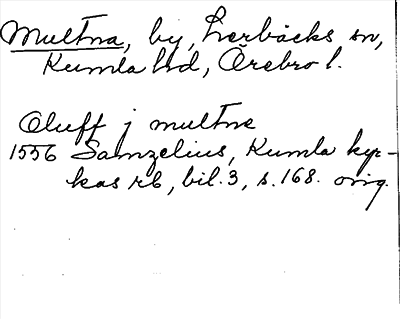 Multna, by, Lerbäcks sn,
Kumla hd, Örebro l.
Oluff j multne
1556 Samzelius, Kumla kyr-
kas rb, bil. 3, s. 168. orig.